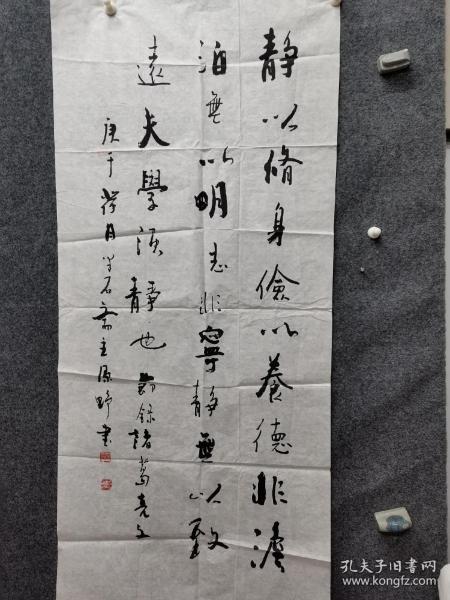 静以脩身儉以養德非澹
泊無以明志非寧静無以致
遠夫學須静也節録諸葛亮文
庚子荷月石齋主原野書
孔夫子旧书网
www.kongfz.com